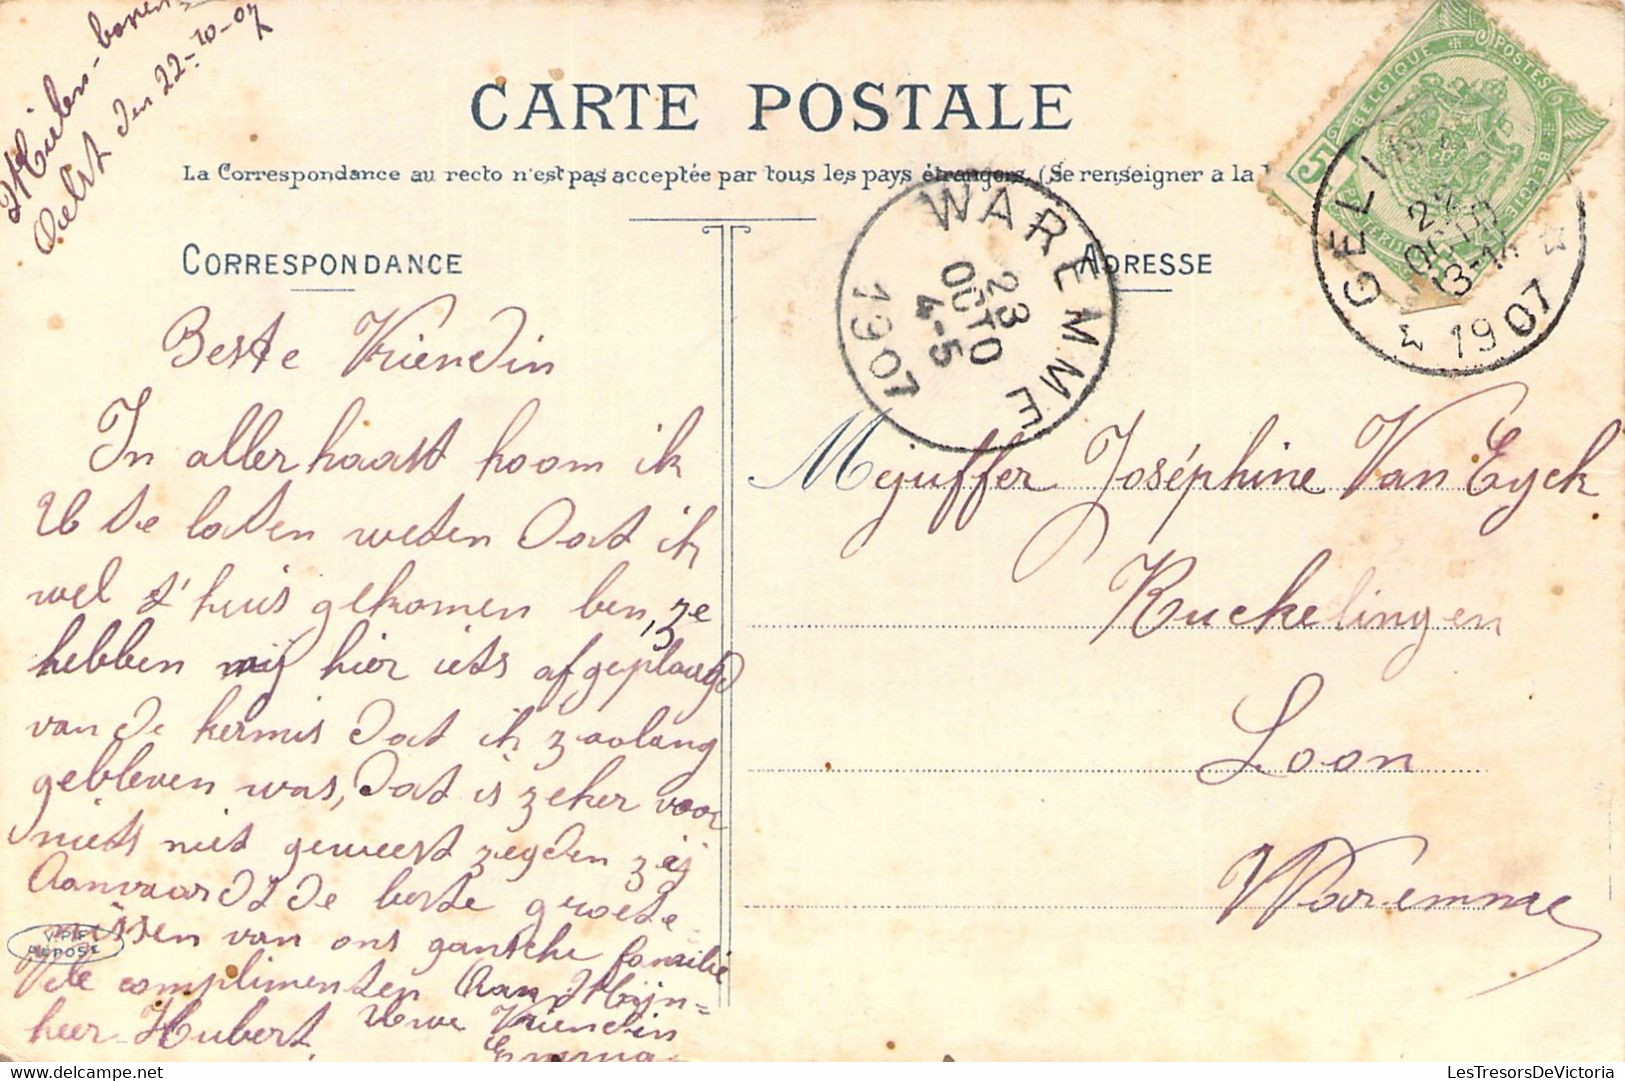 Oelst den 22-10-07
CARTE POSTALE
La Correspondance au recto n'est pas acceptée par tous les pays étrangers. (Se renseigner a la
CORRESPONDANCE
ADRESSE
WAREMME
23
OCTO
4-5
1907
POSTES
BELGIQUE
BELGIE
5
GELI
22
OCTO
1907
Beste Vriendin
In aller haast koom ik
U te laten weten dat ik
wel t'huis gekomen ben, ze
hebben mij hier iets afgeplaagd
van de kermis dat ik zoolang
gebleven was, dat is zeker voor
niets niet geweest zegden zij
Aanvaardt de beste groete-
nissen van ons gansche familie
Vele complimenten aan Mijn=
heer Hubert. Uwe Vriendin
Emma
V.P.F.
DEPOSE
Mejuffer Joséphine Van Eyck
Ruckelingen
Loon
Waremme
LesTresorsDeVictoria
www.LesTresorsDeVictoria.com